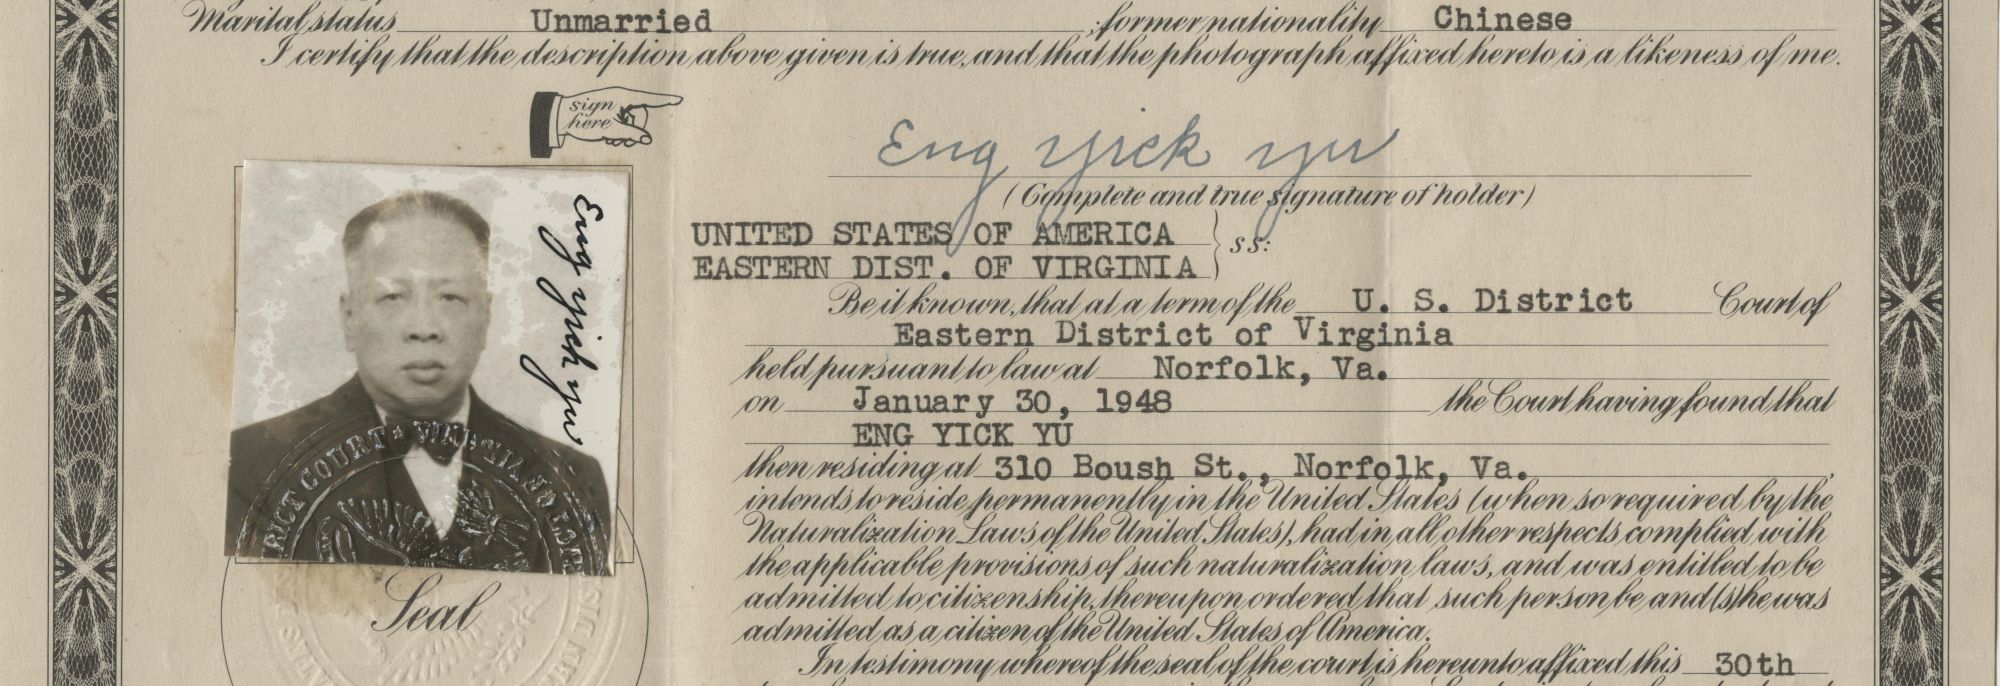 Marital status Unmarried ; former nationality Chinese
I certify that the description above given is true, and that the photograph affixed hereto is a likeness of me.
sign
here
Eng Yick Yu
(Complete and true signature of holder)
Eng Yick Yu
UNITED STATES OF AMERICA
EASTERN DIST. OF VIRGINIA } ss:
Be it known, that at a term of the U. S. District Court of
Eastern District of Virginia
held pursuant to law at Norfolk, Va.
on January 30, 1948 the Court having found that
ENG YICK YU
then residing at 310 Boush St., Norfolk, Va.,
intends to reside permanently in the United States (when so required by the
Naturalization Laws of the United States), had in all other respects complied with
the applicable provisions of such naturalization laws, and was entitled to be
admitted to citizenship, thereupon ordered that such person be and (s)he was
admitted as a citizen of the United States of America.
Seal
In testimony whereof the seal of the court is hereunto affixed this 30th